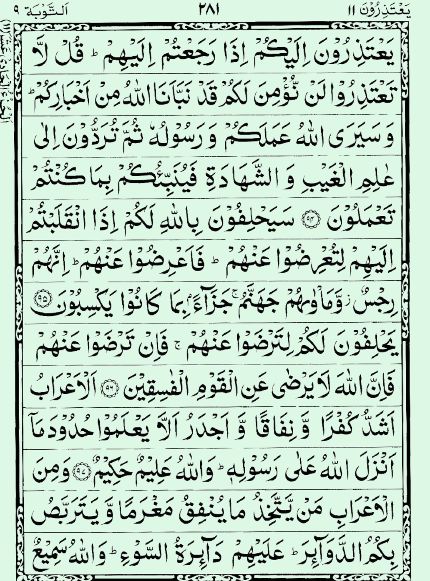 يَعْتَذِرُوْنَ ١١ ٢٨١ اَلتَّوْبَة ٩
يَعْتَذِرُوْنَ اِلَيْكُمْ اِذَا رَجَعْتُمْ اِلَيْهِمْ ؕ قُلْ لَّا
تَعْتَذِرُوْا لَنْ نُّؤْمِنَ لَكُمْ قَدْ نَبَّاَنَا اللّٰهُ مِنْ اَخْبَارِكُمْ ؕ
وَ سَيَرَى اللّٰهُ عَمَلَكُمْ وَ رَسُوْلُهٗ ثُمَّ تُرَدُّوْنَ اِلٰى
عٰلِمِ الْغَيْبِ وَ الشَّهَادَةِ فَيُنَبِّئُكُمْ بِمَا كُنْتُمْ
تَعْمَلُوْنَ ۝٩٤ سَيَحْلِفُوْنَ بِاللّٰهِ لَكُمْ اِذَا انْقَلَبْتُمْ
اِلَيْهِمْ لِتُعْرِضُوْا عَنْهُمْ ؕ فَاَعْرِضُوْا عَنْهُمْ ؕ اِنَّهُمْ
رِجْسٌ ؗ وَّ مَاْوٰىهُمْ جَهَنَّمُ ۚ جَزَآءًۢ بِمَا كَانُوْا يَكْسِبُوْنَ ۝٩٥
يَحْلِفُوْنَ لَكُمْ لِتَرْضَوْا عَنْهُمْ ۚ فَاِنْ تَرْضَوْا عَنْهُمْ
فَاِنَّ اللّٰهَ لَا يَرْضٰى عَنِ الْقَوْمِ الْفٰسِقِيْنَ ۝٩٦ اَلْاَعْرَابُ
اَشَدُّ كُفْرًا وَّ نِفَاقًا وَّ اَجْدَرُ اَلَّا يَعْلَمُوْا حُدُوْدَ مَاۤ
اَنْزَلَ اللّٰهُ عَلٰى رَسُوْلِهٖ ؕ وَ اللّٰهُ عَلِيْمٌ حَكِيْمٌ ۝٩٧ وَ مِنَ
الْاَعْرَابِ مَنْ يَّتَّخِذُ مَا يُنْفِقُ مَغْرَمًا وَّ يَتَرَبَّصُ
بِكُمُ الدَّوَآئِرَ ؕ عَلَيْهِمْ دَآئِرَةُ السَّوْءِ ؕ وَ اللّٰهُ سَمِيْعٌ